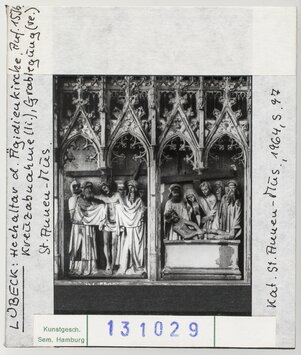 LÜBECK: Hochaltar d. Ägidienkirche, Auf. 15. Jh.
Kreuzabnahme (li.), Grablegung (re.)
St. Annen-Mus
Kat. St. Annen-Mus, 1964, S. 97
Kunstgesch.
Sem. Hamburg
131029